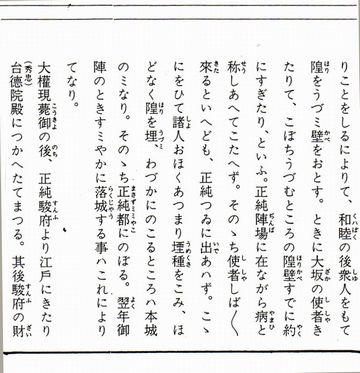 りことをしるによりて、和睦の後衆人をもて
隍をうづミ壁をおとす。ときに大坂の使者き
たりて、こぼちうづむところの隍壁すでに約
にすぎたり、といふ。正純陣場に在ながら病と
称しあへてこたへず。そのゝち使者しば〱
來るといへども、正純つゐに出あハず。こゝ
にをひて諸人おほくあつまり埋種をこみ、ほ
どなく隍を埋、わづかにのこるところハ本城
のミなり。そのゝち正純都にのぼる。翌年御
陣のときすミやかに落城する事ハこれにより
てなり。
大權現薨御の後、正純駿府より江戸にきたり
台德院殿(秀忠)につかへたてまつる。其後駿府の財